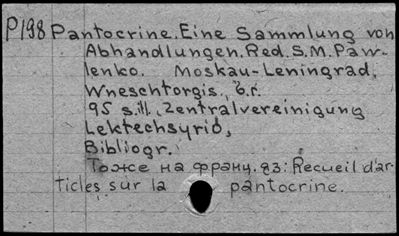 P198 Pantocrine. Eine Sammlung von
Abhandlungen. Red. S.M. Paw-
lenko. Moskau-Leningrad,
Wneschtorgis, б.г.
95 s. ill., Zentralvereinigung
Lektechsyrió,
Bibliogr.
Тоже на франц. яз: Recueil d'ar-
ticles sur la pantocrine.